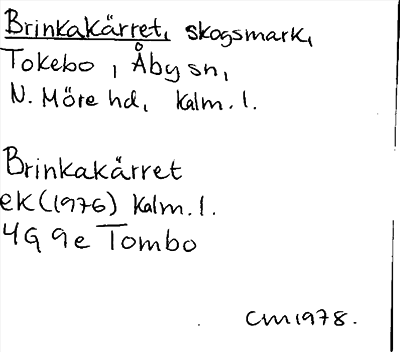 Brinkakärret, skogsmark,
Tokebo, Åby sn,
N. Möre hd, Kalm. l.
Brinkakärret
ek (1976) Kalm. l.
4G 9e Tombo
CM 1978.